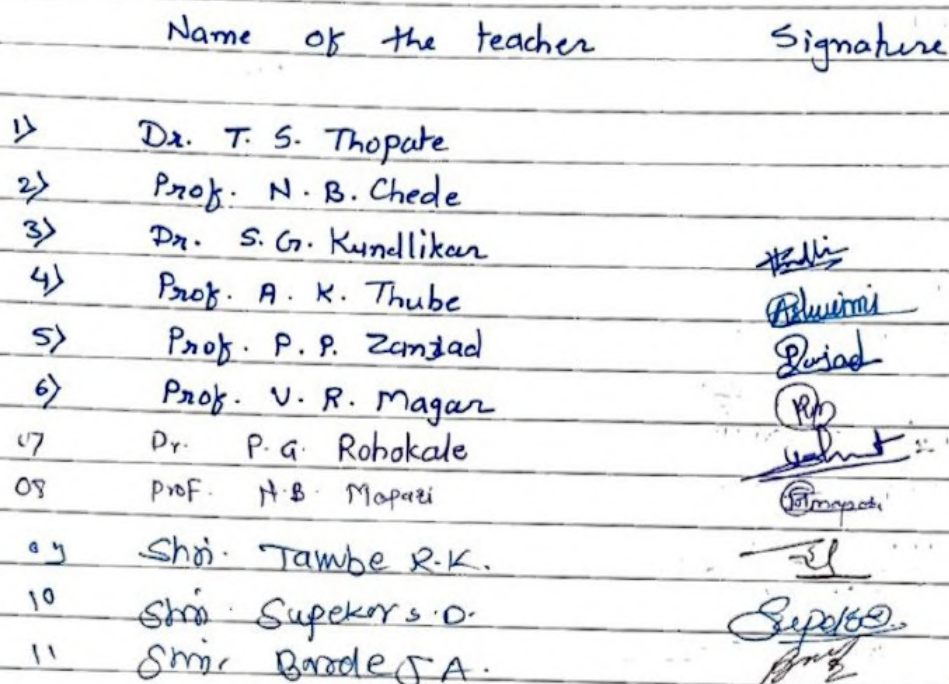 Name of the teacher Signature
1) Dr. T. S. Thopate
2) Prof. N. B. Chede
3) Dr. S. G. Kundlikar
4) Prof. A. K. Thube Ashwini
5) Prof. P. P. Zanjad
6) Prof. V. R. Magar
07 Dr. P. G. Rohokale
08 Prof. N. B. Mapari
09 Shri. Tambe R.K.
10 Shri Supekar S.D.
11 Shri. Barde J A.